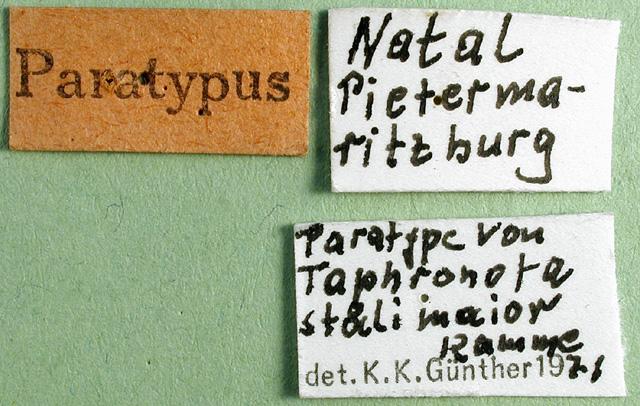 Paratypus
Natal
Pieterma-
ritzburg
Paratype von
Taphronota
ståli maior
Ramme
det. K. K. Günther 1971